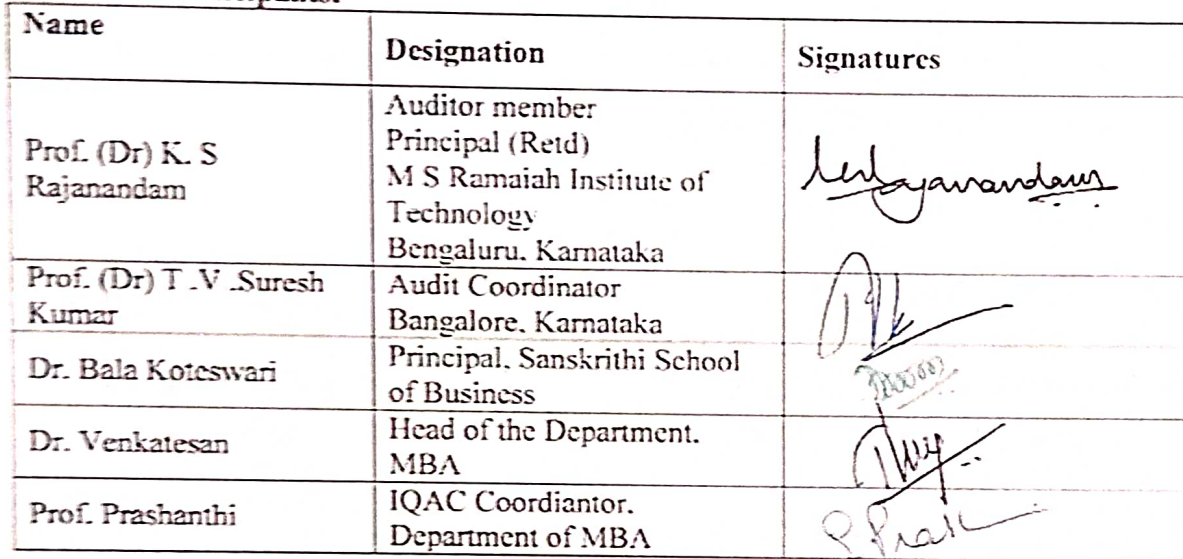 Name
Designation
Signatures
Prof. (Dr) K. S
Rajanandam
Auditor member
Principal (Retd)
M S Ramaiah Institute of
Technology
Bengaluru. Karnataka
Prof. (Dr) T .V .Suresh
Kumar
Audit Coordinator
Bangalore. Karnataka
Dr. Bala Koteswari
Principal. Sanskrithi School
of Business
Dr. Venkatesan
Head of the Department.
MBA
Prof. Prashanthi
IQAC Coordiantor.
Department of MBA